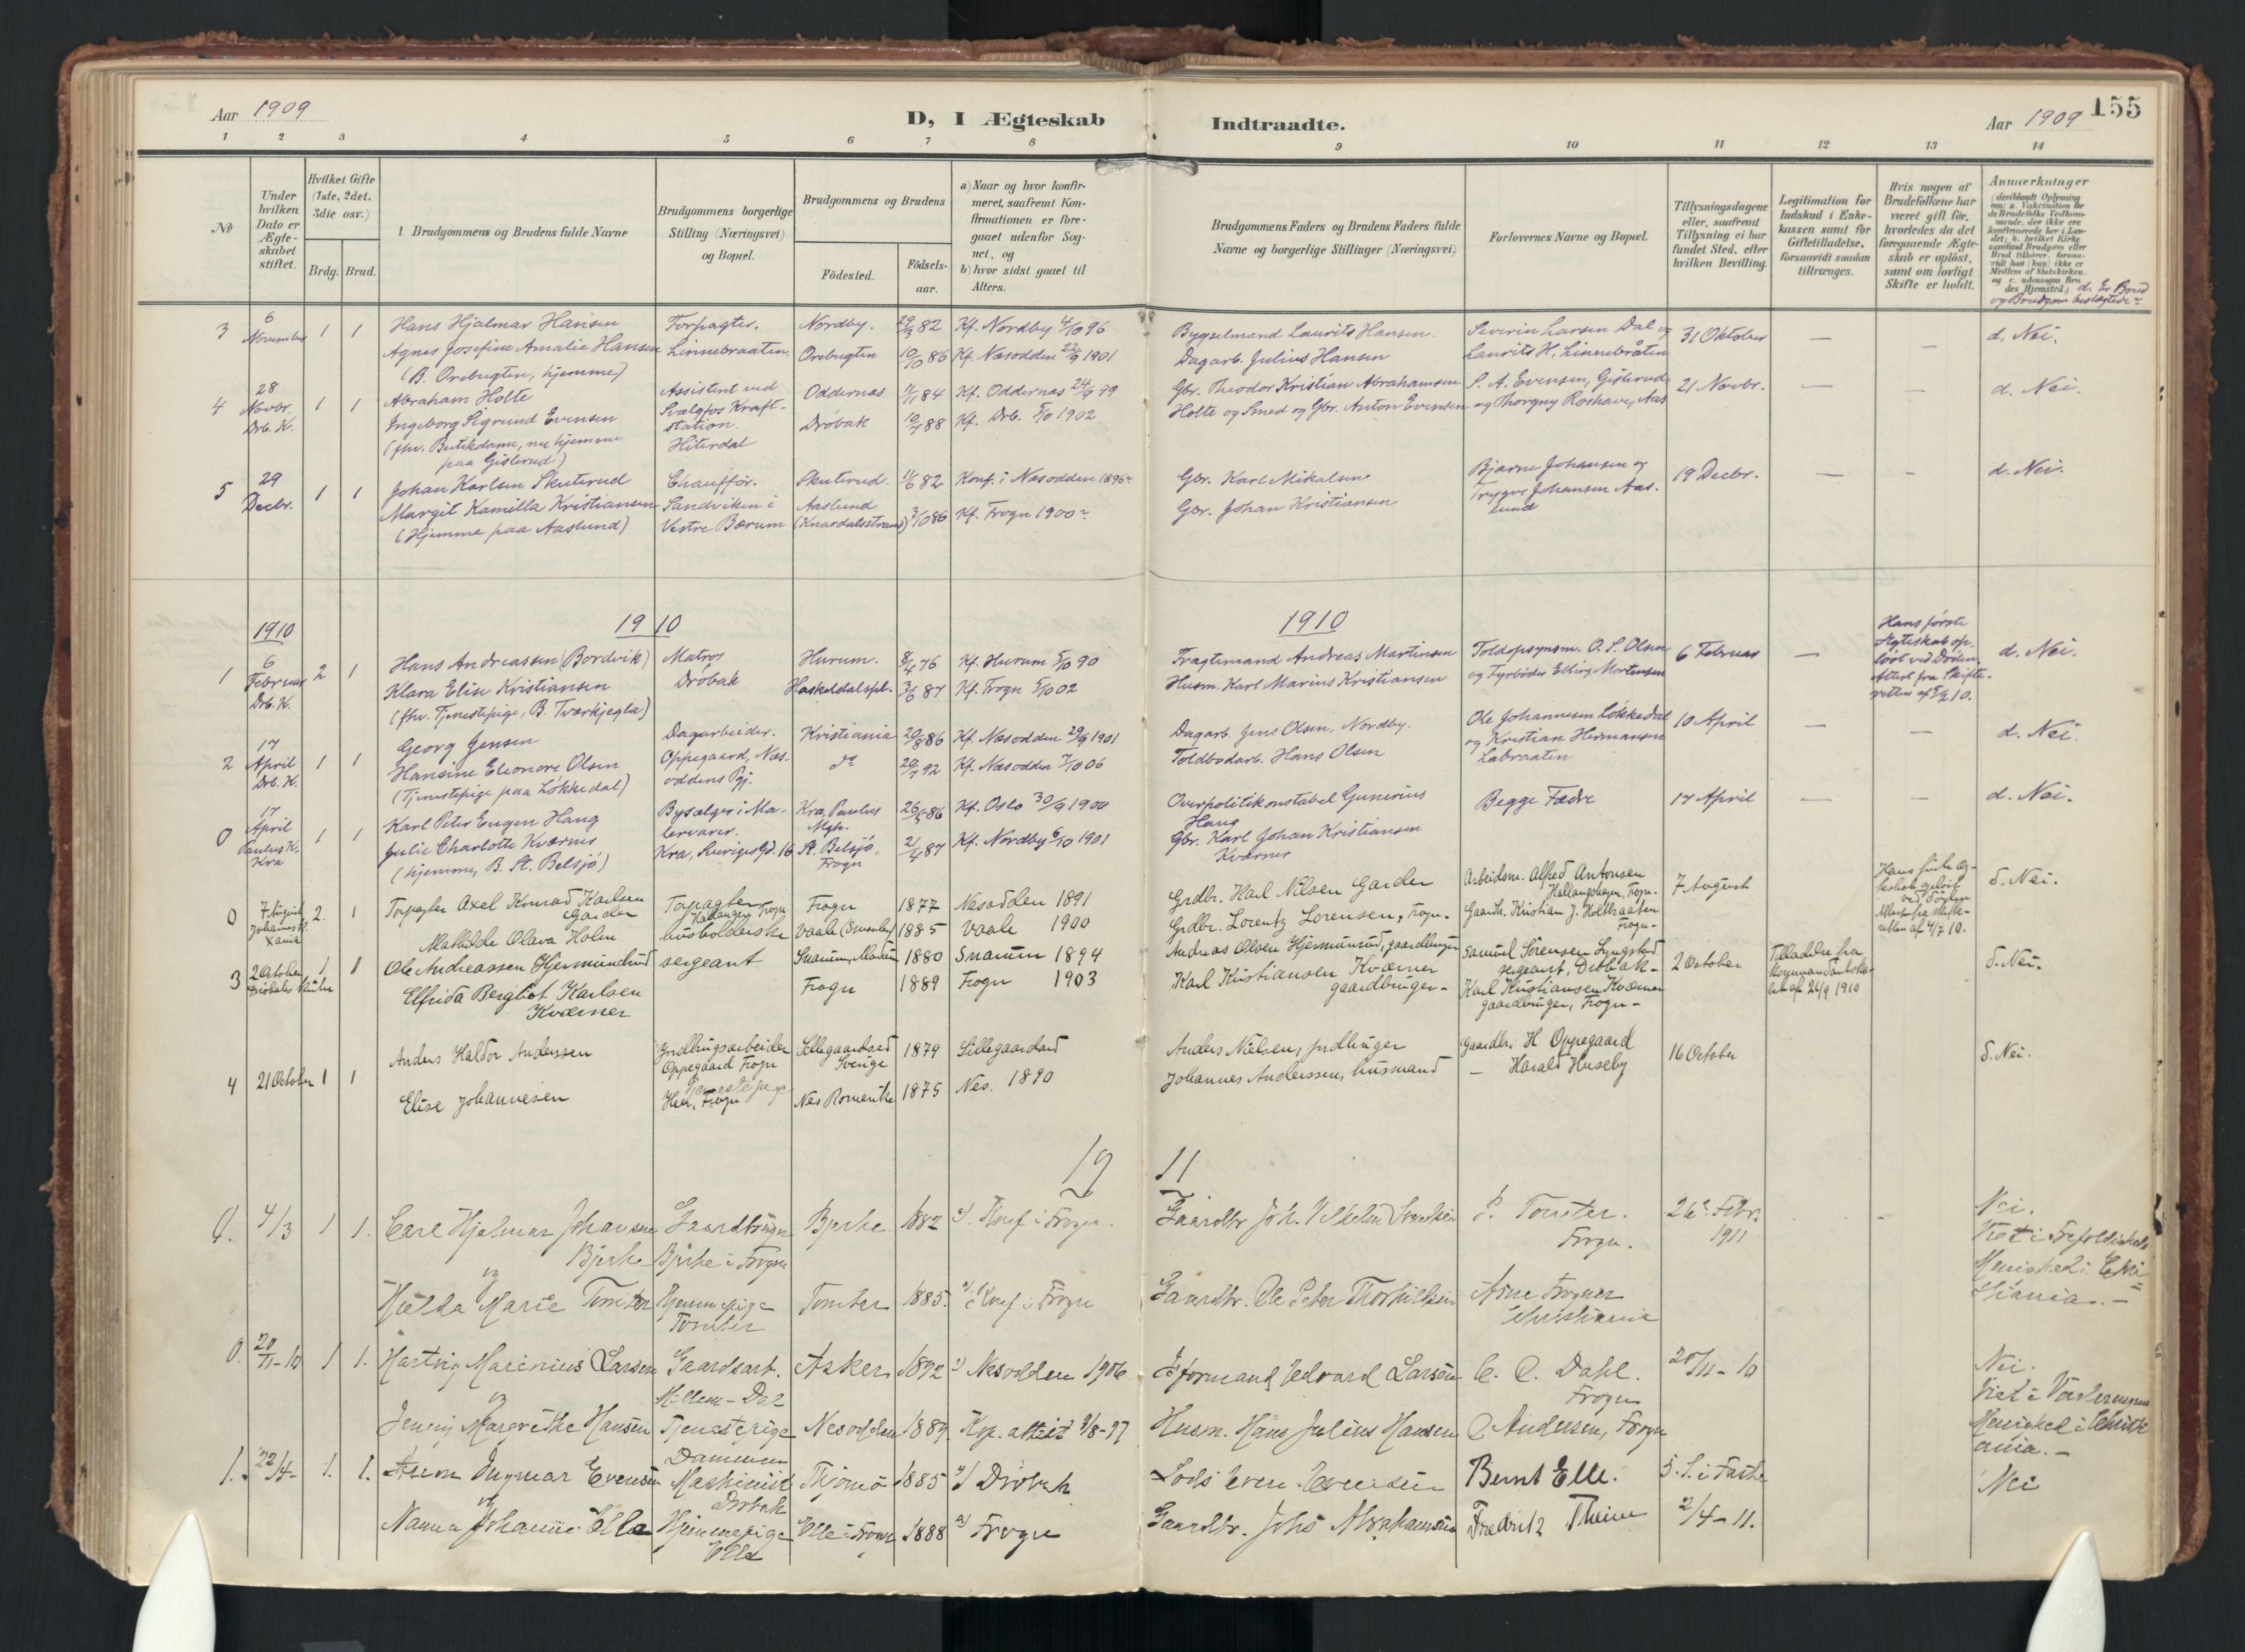 Aar 1909
D, I Ægteskab
Indtraadte.
Aar 1909
155
1 2 3 4 5 6 7 8 9 10 11 12 13 14
No
Under hvilken Dato er Ægte-skabet stiftet.
Hvilket Gifte (1ste, 2det, 3die osv.)
Brdg. Brud.
Brudgommens og Brudens fulde Navne
Brudgommens borgerlige Stilling (Næringsvei) og Bopæl.
Brudgommens og Brudens
Födested.
Födsels-aar.
a) Naar og hvor konfir-meret, saafremt Kon-firmationen er fore-gaaet udenfor Sog-net, og
b) hvor sidst gaaet til Alters.
Brudgommens Faders og Brudens Faders fulde Navne og borgerlige Stillinger (Næringsvei)
Forlovernes Navne og Bopæl.
Tillysningsdagene eller, saafremt Tillysning ei har fundet Sted, efter hvilken Bevilling.
Legitimation for Indskud i Enke-kassen samt for Giftetilladelse, forsaavidt saadan tiltrænges.
Hvis nogen af Brudefolkene har været gift för, hvorledes da det foregaaende Ægte-skab er oplöst, samt om lovligt Skifte er holdt.
Anmærkninger
d. Er Brud og Brudgom beslægtede?
3 6 November 1 1 Hans Hjalmar Hansen Forpagter. Nordby. 82 Kf. Nordby 4/10 96 Bygselmand Laurits Hansen Severin Larsen Dal og 31 Oktober — — d. Nei.
Agnes Josefine Amalie Hansen Linnebraaten. Orebugten 10/10 86 Kf. Næsodden 22/9 1901 Dagarb. Julius Hansen Laurits H. Linnebråten
(B. Orebugten, hjemme)
4 28 Novbr. Drb. K. 1 1 Abraham Holte Assistent ved Oddernæs 84 Kf. Oddernæs 24/9 99 Gbr. Theodor Kristian Abrahamsen S. A. Evensen, Gislerud 21 Novbr. — — d. Nei.
Ingeborg Sigrund Evensen Svælgfos Kraft-station. Drøbak 88 Kf. Drb. 5/10 1902 Holte og Smed og Gbr. Anton Evensen og Thorgny Roshauw, Aas
(fhv. Butikdame, nu hjemme Hiterdal
paa Gislerud)
5 29 Decbr. 1 1 Johan Karlsen Skuterud Chauffør. Skuterud. 82 Konf. i Næsodden 1896 Gbr. Karl Mikalsen Bjarne Johansen og 19 Decbr. — — d. Nei.
Margit Kamilla Kristiansen Sandviken i Aaslund 86 Kf. Frogn 1900 Gbr. Johan Kristiansen Trygve Johansen Aas-lund
(Hjemme paa Aaslund) Vestre Bærum (Knardalsstrand)
1910 1910 1910
1 6 Februar Drb. K. 2 1 Hans Andreassen (Bordvik) Matros Hurum. 76 Kf. Hurum 5/10 90 Fragtemand Andreas Martinsen Toldopsynsm. O. S. Olsen 6 Februar — Hans første Ægteskab op-løst ved Døden. Attest fra Skifte-retten af 5/2 10. d. Nei.
Klara Elise Kristiansen Drøbak 87 Kf. Frogn 5/10 02 Husm. Karl Marius Kristiansen og Fyrbøder Elling Mortensen
(fhv. Tjenestepige, B. Tværkjegla)
2 17 April Drb. K. 1 1 Georg Jensen Dagarbeider. Kristiania 20/8 86 Kf. Næsodden 29/9 1901 Dagarb. Jens Olsen, Nordby. Ole Johannesen Løkkedal 10 April — — d. Nei.
Hansine Eleonore Olsen Oppegaard, Næs-oddens Pgj. do 92 Kf. Næsodden 7/10 06 Toldbodarb. Hans Olsen og Kristian Hermansen Labraaten
(Tjenestepige paa Løkkedal)
0 17 April Paulus K. Kra 1 1 Karl Peter Eugen Haug Bysælger i Ma-lervarer. Kra, Paulus Mgh. 26/5 86 Kf. Oslo 30/9 1900 Overpolitikonstabel Gunerius Haug Begge Fædre 17 April — — d. Nei.
Julie Charlotte Kværner Kra, Sverigesgd. 16 St. Belsjø, Frogn 2/4 87 Kf. Nordby 6/10 1901 Gbr. Karl Johan Kristiansen Kværner
(hjemme, B. St. Belsjø)
0 7 August Johannesk. Xania 2. 1 Forpagter Axel Konrad Karlsen Garder Forpagter Hallangen Frogn Frogn 1877 Nasodden 1891 Grdbr. Karl Nilsen Garder Arbeidsm. Alfred Antonsen Hallangshagen, Frogn. 7 August d. Nei.
Mathilde Olava Holm husholderske Vaale 1885 Vaale 1900 Grdbr. Lorentz Lorensen, Frogn. Gaardbr. Kristian J. Holtbraaten Frogn.
3 2 October 1 1 Ole Andreassen Hjermundrud sergeant Snarum, Modum 1880 Snarum 1894 Andreas Olsen Hjermunrud, gaardbruger Samuel Sørensen Lyngstad sergeant, Drøbak 2 October Tilladelse fra af 26/9 1910 d. Nei.
Elfrida Bergliot Karlsen Kværner Frogn 1889 Frogn 1903 Karl Kristiansen Kværner gaardbruger Karl Kristiansen Kværner gaardbruger, Frogn
4 21 October 1 1 Anders Haldor Anderssen Jordbrugsarbeider Oppegaard Frogn Sillegaardsed Sverige 1879 Sillegaardsed Anders Nielsen, jordbruger Gaardbr. H Oppegaard 16 October d. Nei.
Elise Johannesen Tjenestepige Heer, Frogn Nes Romerike 1875 Nes. 1890 Johannes Anderssen, husmand — Harald Huseby
19 11
0. 4/3 1 1. Carl Hjalmar Johansen Bjerke Gaardbruger Bjerke i Frogn Bjerke 1882 Konf i Frogn. Gaardbr Joh. P. Tomter. Frogn. 26 Febr. 1911 Nei.
og
Hilda Marie Tomter Hjemmepige Tomter Tomter 1885. Konf i Frogn Gaardbr. Ole Peter Thorkildsen Arne Frogner Christiania
0. 20/11-10 1 1. Hartvig Marinius Larsen Gaardsarb. Mellem-Dal Asker 1892 Nesodden 1906 Edvard Larsen C. C. Dahl. Frogn 20/11-10 Nei.
og
Jenny Margrethe Hansen Tjenestepige Dammen Nesodden 1889 Husm. Hans Julius Hansen O Andersen, Frogn
1. 22/4- 1. 1. Ingmar Evensen Maskinist Drøbak Thjømø 1885 a) Drøbak Lods Even Evensen Bernt Elle. Nei
og
Nanna Johanne Elle Hjemmepige Elle Elle i Frogn 1888 a) Frogn Gaardbr. Johs Abrahamsen Fredrik Thime 2/4-11.